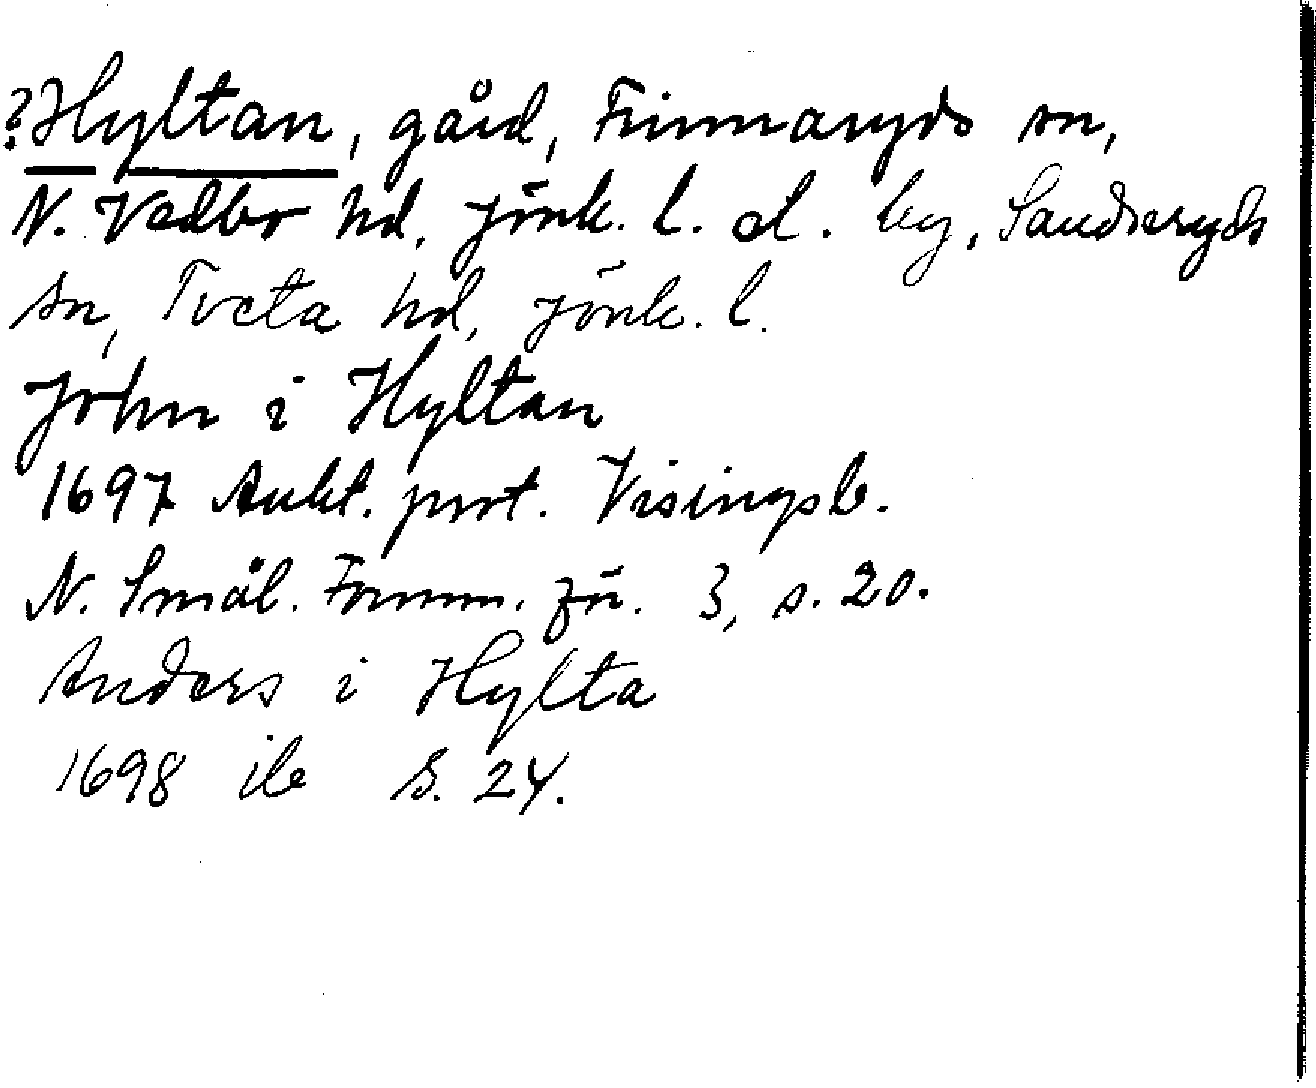 ?Hyltan, gård, Finnaryds sn,
N. Vedbo hd, Jönk. l. el. by, Sandseryds
sn, Tveta hd, Jönk. l.
John i Hyltan
1697 Aukt. prot. Visingsb.
N. Smål. Fornm. för. 3, s. 20.
Anders i Hylta
1698 ib s. 24.